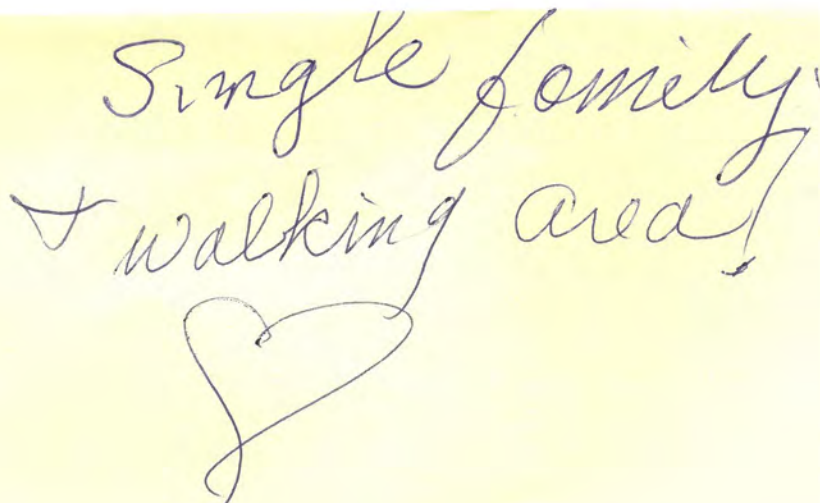 Single family
+ walking area!